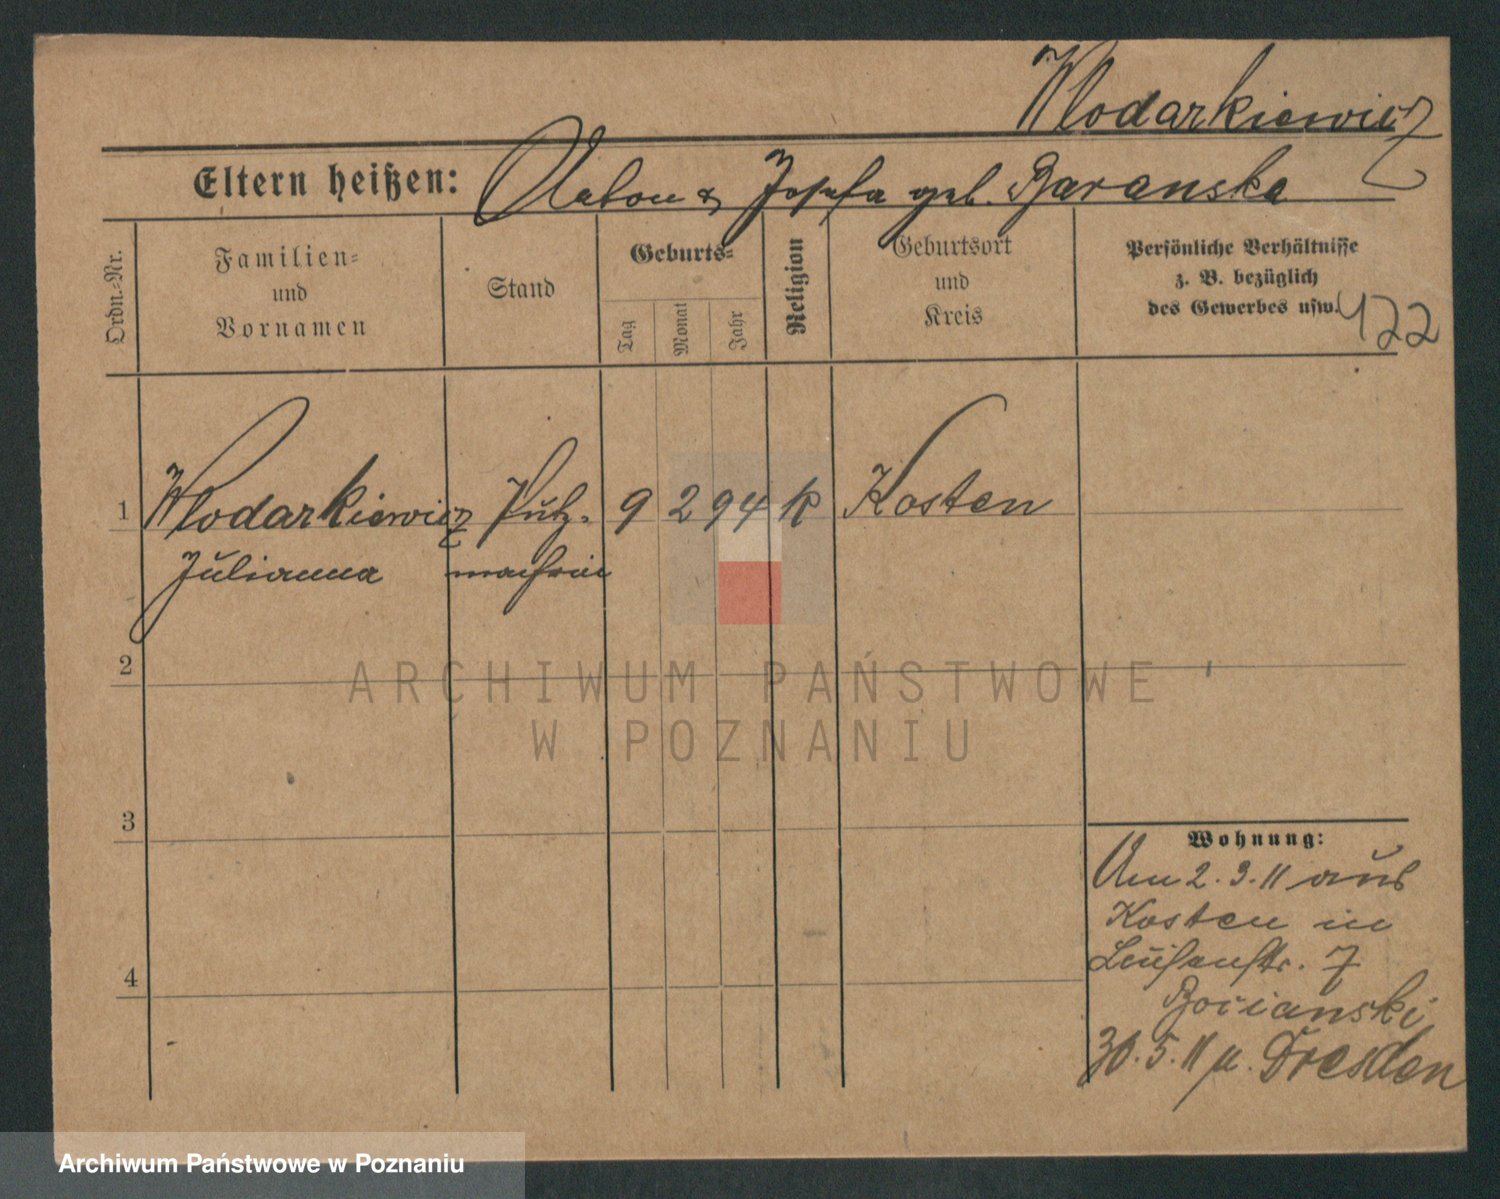 Wlodarkiewicz
Eltern heißen: Anton & Josefa geb. Baranska
Ordn.-Nr.
Familien-
und
Vornamen
Stand
Geburts-
Tag
Monat
Jahr
Religion
Geburtsort
und
Kreis
Persönliche Verhältnisse
z. B. bezüglich
des Gewerbes usw.
122
1 Wlodarkiewicz Putz- 9 2 94 k Kosten
Julianna macherin
2
3
4
Wohnung:
Am 2.3.11 aus
Kosten in
Luisenstr. 7
Bocianski
30.5.11 n. Dresden
ARCHIWUM PAŃSTWOWE
W POZNANIU
Archiwum Państwowe w Poznaniu